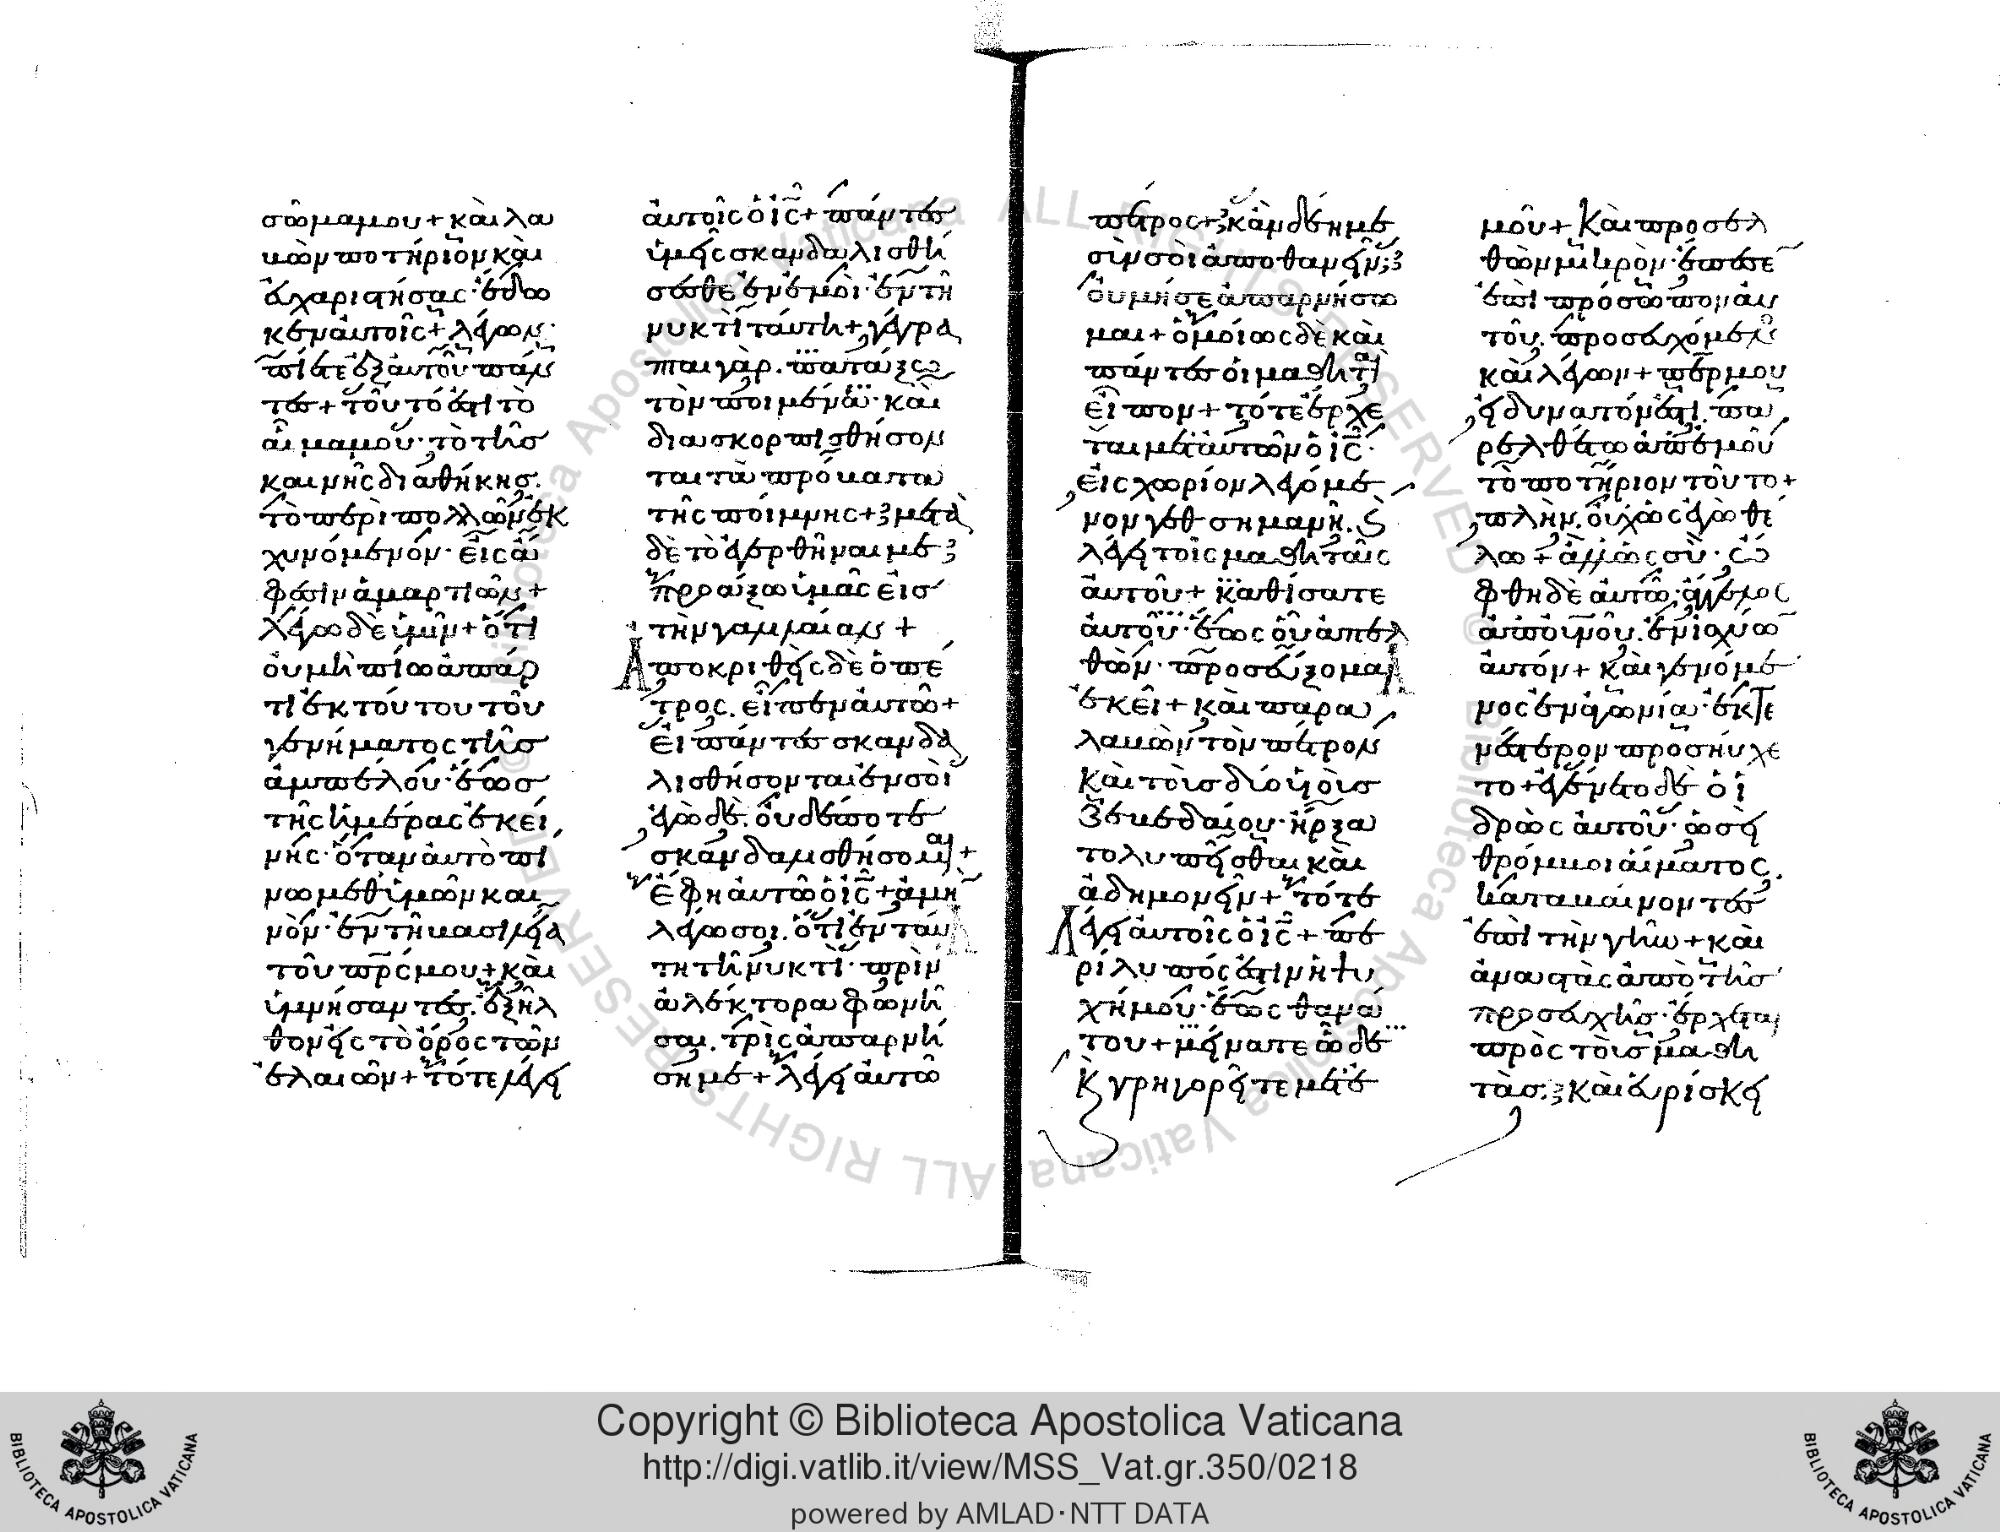 σῶμά μου + καὶ λα
βὼν ποτήριον καὶ
εὐχαριστήσας· ἔδω
κεν αὐτοῖς + λέγων·
πίετε ἐξ αὐτοῦ πάν
τες + τοῦτό ἐστι τὸ
αἷμά μου· τὸ τῆς
καινῆς διαθήκης.
τὸ περὶ πολλῶν ἐκ
χυνόμενον· εἰς ἄ
φεσιν ἁμαρτιῶν +
λέγω δὲ ὑμῖν + ὅτι
οὐ μὴ πίω ἀπάρ
τι ἐκ τούτου τοῦ
γενήματος τῆς
ἀμπέλου· ἕως
τῆς ἡμέρας ἐκεί
νης· ὅταν αὐτὸ πί
νω μεθ' ὑμῶν και
νὸν· ἐν τῆ βασιλεία
τοῦ πρς μου + καὶ
ὑμνήσαντες. ἐξῆλ
θον εἰς τὸ ὄρος τῶν
ἐλαιῶν + τότε λέγει
αὐτοῖς ὁ ις + πάντες
ὑμεῖς σκανδαλισθή
σεσθε ἐν ἐμοὶ· ἐν τῆ
νυκτὶ ταύτη + γέγρα
πται γὰρ. πατάξω
τὸν ποιμένα· καὶ
διασκορπισθήσον
ται τὰ πρόβατα
τῆς ποίμνης + μετὰ
δὲ τὸ ἐγερθῆναί με
προάξω ὑμᾶς εἰς
τὴν γαλιλαίαν +
Ἀποκριθεὶς δὲ ὁ πέ
τρος. εἶπεν αὐτῶ +
εἰ πάντες σκανδα
λισθήσονται ἐν σοὶ
ἐγὼ δὲ. οὐδέποτε
σκανδαλισθήσομαι +
ἔφη αὐτῶ ὁ ις + ἀμὴν
λέγω σοι. ὅτι ἐν ταύ
τη τῆ νυκτὶ· πρὶν
ἀλέκτορα φωνῆ
σαι. τρὶς ἀπαρνή
ση με + λέγει αὐτῶ
πέτρος + κἂν δέη με
σὺν σοὶ ἀποθανεῖν;
οὐ μή σε ἀπαρνήσω
μαι + ὁμοίως δὲ καὶ
πάντες οἱ μαθηταὶ
εἶπον + τότε ἔρχε
ται μετ' αὐτῶν ὁ ις·
εἰς χωρίον λεγόμε
νον γεθσημανῆ. κ
λέγει τοῖς μαθηταῖς
αὐτοῦ + καθίσατε
αὐτοῦ· ἕως οὗ ἀπελ
θὼν· προσεύξομαι
ἐκεῖ + καὶ παρα
λαβὼν τὸν πέτρον
καὶ τοὺς δύο υἱοὺς
ζεβεδαίου· ἤρξα
το λυπεῖσθαι καὶ
ἀδημονεῖν + τότε
Λέγει αὐτοῖς ὁ ις + πε
ρίλυπός ἐστιν ἡ ψυ
χή μου· ἕως θανά
του + μείνατε ὧδε
κ γρηγορεῖτε μετ' ἐ
μοῦ + Καὶ προσελ
θὼν μικρὸν· ἔπεσε
ἐπὶ πρόσωπον αὐ
τοῦ. προσευχόμενος
καὶ λέγων + πέρ μου
εἰ δυνατόν ἐστι. πα
ρελθέτω ἀπ' ἐμοῦ
τὸ ποτήριον τοῦτο +
πλὴν. οὐχ ὡς ἐγὼ θέ
λω + ἀλλ' ὡς σύ· ὤ
φθη δὲ αὐτῶ. ἄγγελος
ἀπ' οὐνοῦ. ἐνισχύων
αὐτόν + καὶ γενόμε
νος ἐν ἀγωνία· ἐκτε
νέστερον προσηύχε
το + ἐγένετο δὲ ὁ ἱ
δρὼς αὐτοῦ· ὡσεὶ
θρόμβοι αἵματος.
καταβαίνοντες
ἐπὶ τὴν γῆν + καὶ
ἀναστὰς ἀπὸ τῆς
προσευχῆς· ἔρχεται
πρὸς τοὺς μαθη
τὰς· καὶ εὑρίσκει
Copyright © Biblioteca Apostolica Vaticana
http://digi.vatlib.it/view/MSS_Vat.gr.350/0218
powered by AMLAD·NTT DATA
BIBLIOTECA APOSTOLICA VATICANA
BIBLIOTECA APOSTOLICA VATICANA
© Biblioteca Apostolica Vaticana ALL RIGHTS RESERVED
© Biblioteca Apostolica Vaticana ALL RIGHTS RESERVED